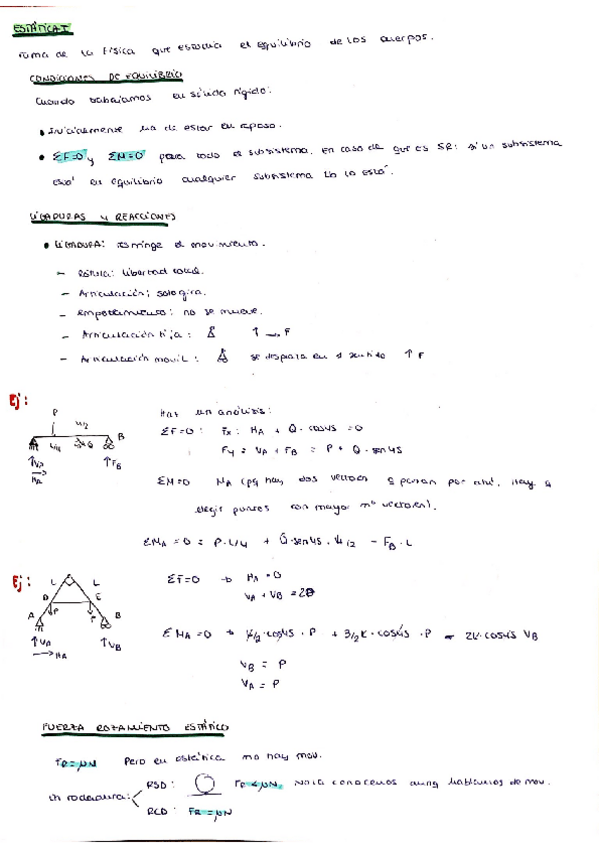 ESTÁTICA I
rama de la física que estudia el equilibrio de los cuerpos.
CONDICIONES DE EQUILIBRIO
Cuando trabajamos en sólido rígido:
• Inicialmente ha de estar en reposo.
• ΣF=0 y ΣM=0 para todo el subsistema, en caso de que es SR: si un subsistema
está en equilibrio cualquier subsistema tb lo está.
LIGADURAS Y REACCIONES
• LIGADURA: restringe el movimiento.
- Rótula: libertad total.
- Articulación: solo gira.
- Empotramiento: no se mueve.
- Articulación fija: ↑ → F
- Articulación movil: se dispara en el sentido ↑ F
Ej:
P
L/2
L/4
Q
B
↑VA
↑FB
HA
Haz un análisis:
ΣF=0: Fx: HA + Q·cos45 = 0
Fy = VA + FB = P + Q·sen45
ΣM=0 MA (pq hay dos vectores q pasan por ahí, hay q
elegir puntos con mayor nº vectores).
ΣMA = 0 = P·L/4 + Q·sen45·L/2 - FB·L
Ej:
L L
D E
P P
A B
↑VA ↑VB
→ HA
ΣF=0 → HA = 0
VA + VB = 2P
ΣMA = 0 → L/2·cos45·P + 3/2 L·cos45·P = 2L·cos45 VB
VB = P
VA = P
FUERZA ROZAMIENTO ESTÁTICO
FR=μN Pero en estática no hay mov.
En rodadura:
RSD: FR<μN, no la conocemos aunq hablamos de mov.
RCD: FR=μN